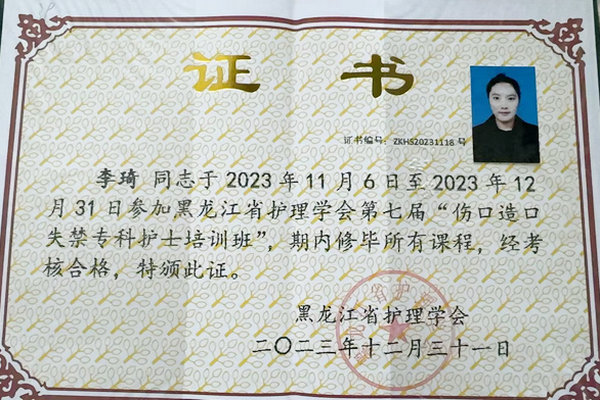 证 书
证书编号：ZKHS20231118号
李琦 同志于2023年11月6日至2023年12
月31日参加黑龙江省护理学会第七届“伤口造口
失禁专科护士培训班”，期内修毕所有课程，经考
核合格，特颁此证。
黑龙江省护理学会
二〇二三年十二月三十一日